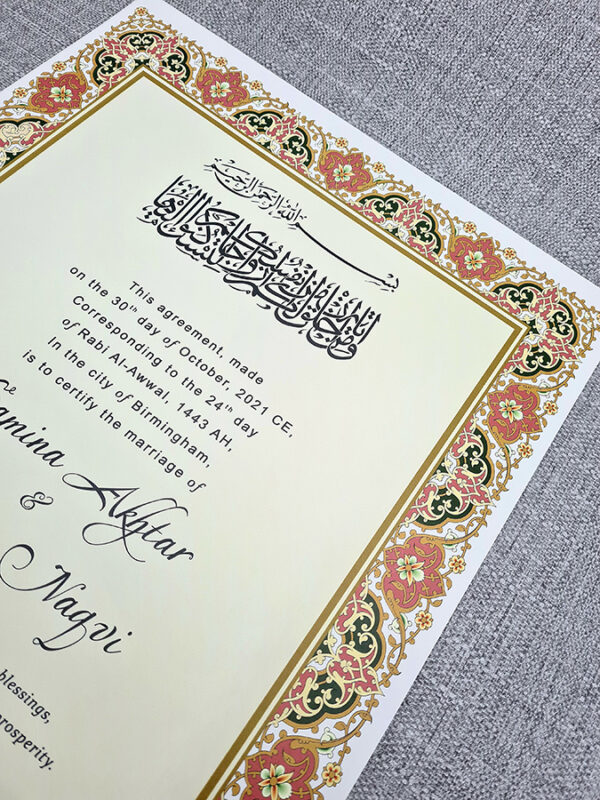 بسم الله الرحمن الرحيم
ومن آياته أن خلق لكم من أنفسكم أزواجا لتسكنوا إليها
This agreement, made
on the 30th day of October, 2021 CE,
Corresponding to the 24th day
of Rabi Al-Awwal, 1443 AH,
In the city of Birmingham,
is to certify the marriage of
amina Akhtar
&
Naqvi
blessings,
prosperity.